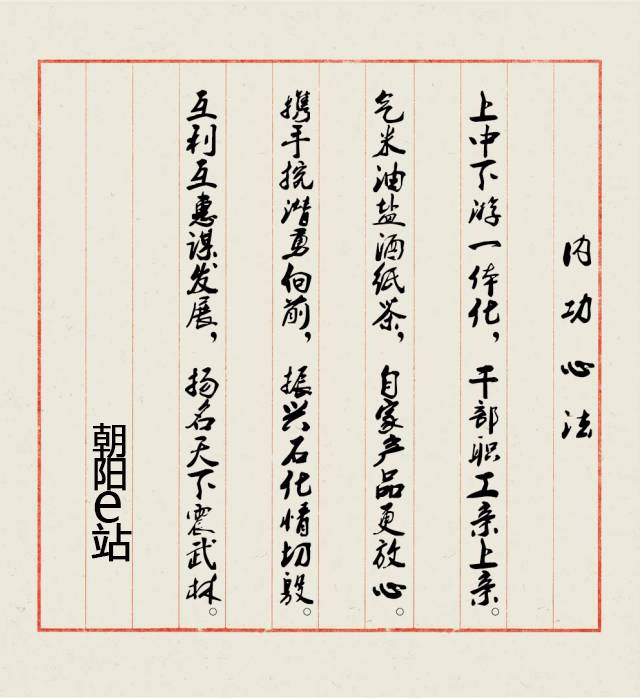 内功心法
上中下游一体化，干部职工亲上亲。
气米油盐酒纸茶，自家产品更放心。
携手挖潜勇向前，振兴石化情切殷。
互利互惠谋发展，扬名天下震武林。
朝阳e站